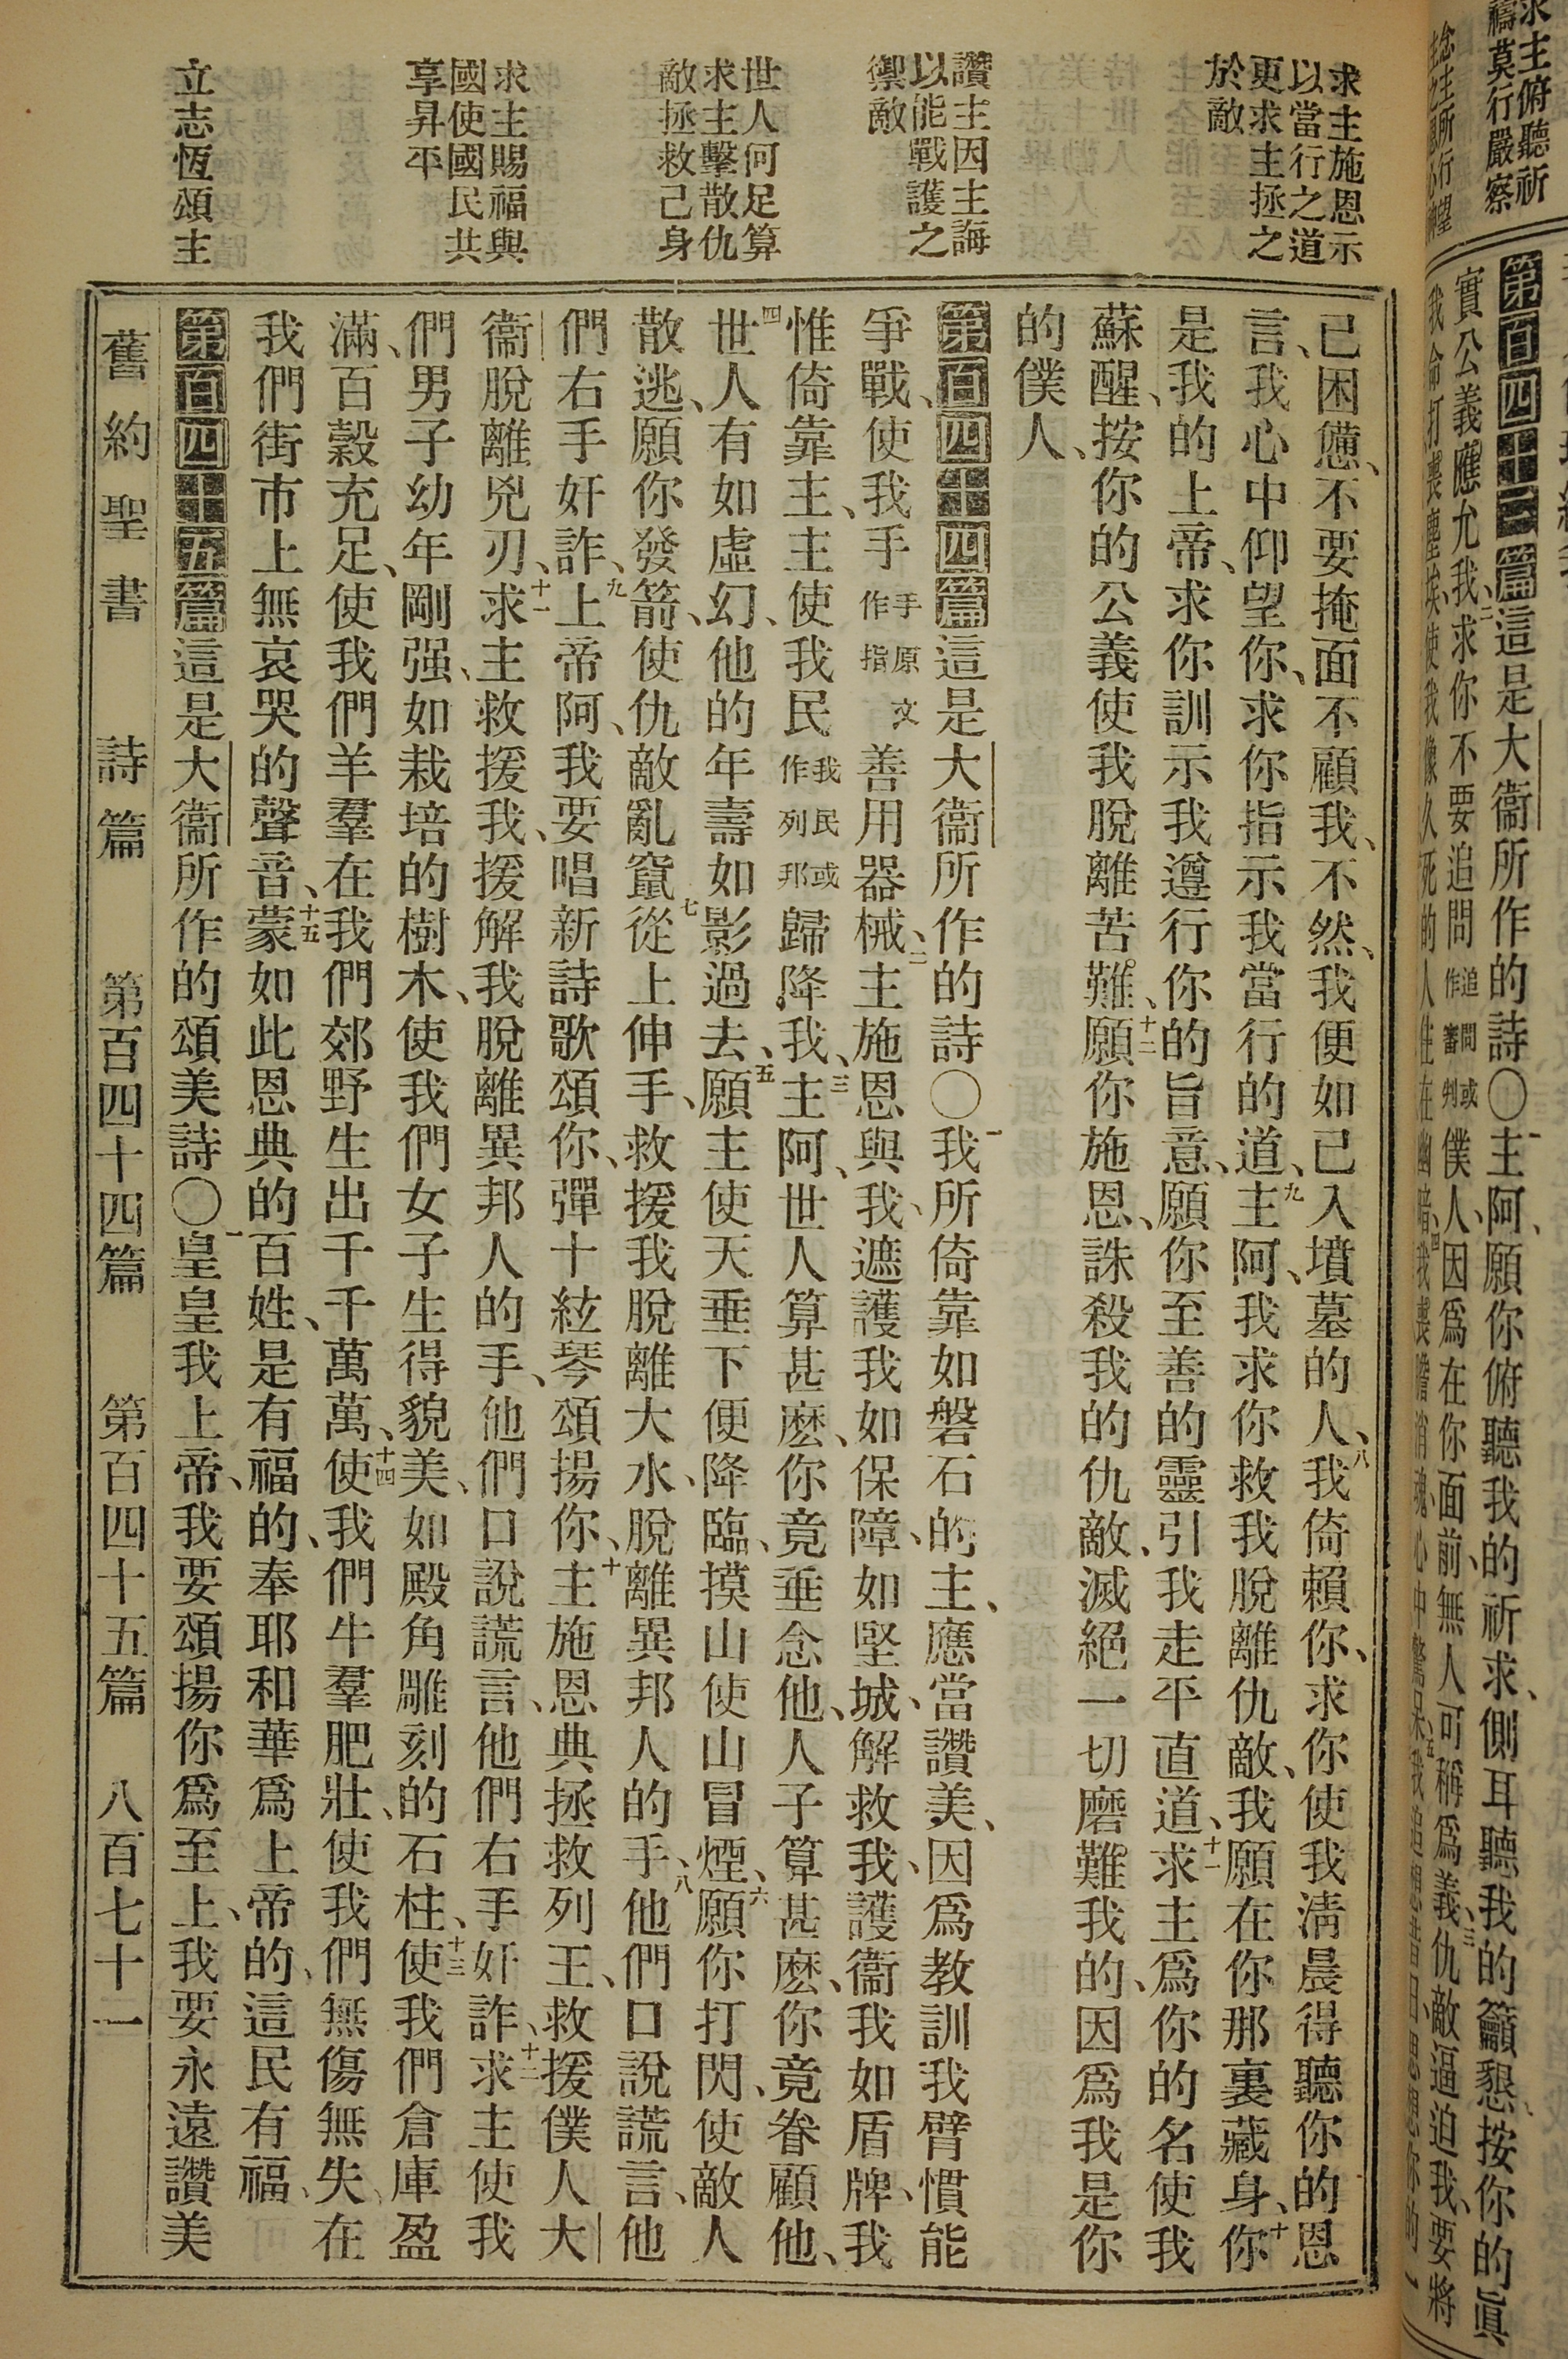 求主俯聽祈
禱莫行嚴察
第百四十三篇這是大衞所作的詩〇一主阿、願你俯聽我的祈求、側耳聽我的籲懇、按你的眞
實公義應允我、二求你不要追問追問或作審判僕人、因爲在你面前、無人可稱爲義、三仇敵逼迫我、要將
求主施恩示
以當行之道
更求主拯之
於敵
讚主因主誨
以能戰護之
禦敵
世人何足算
求主擊散仇
敵拯救己身
求主賜福與
國使國民共
享昇平
立志恆頌主
己困憊、不要掩面不顧我、不然、我便如已入墳墓的人、八我倚賴你、求你使我淸晨得聽你的恩
言、我心中仰望你、求你指示我當行的道、九主阿、我求你救我脫離仇敵、我願在你那裏藏身、十你
是我的上帝、求你訓示我遵行你的旨意、願你至善的靈引我走平直道、十一求主爲你的名使我
蘇醒、按你的公義使我脫離苦難、十二願你施恩、誅殺我的仇敵、滅絕一切磨難我的、因爲我是你
的僕人、
第百四十四篇這是大衞所作的詩〇一我所倚靠如磐石的主、應當讚美、因爲教訓我臂慣能
爭戰、使我手手原文作指善用器械、二主施恩與我、遮護我如保障、如堅城、解救我、護衞我如盾牌、我
惟倚靠主、主使我民我民或作列邦歸降我、三主阿、世人算甚麽、你竟垂念他、人子算甚麽、你竟眷顧他、
四世人有如虛幻、他的年壽如影過去、五願主使天垂下便降臨、摸山使山冒煙、六願你打閃、使敵人
散逃、願你發箭、使仇敵亂竄、七從上伸手、救援我脫離大水、脫離異邦人的手、八他們口說謊言、他
們右手奸詐、九上帝阿、我要唱新詩歌頌你、彈十絃琴頌揚你、十主施恩典拯救列王、救援僕人大
衞脫離兇刃、十一求主救援我、援解我脫離異邦人的手、他們口說謊言、他們右手奸詐、十二求主使我
們男子幼年剛强、如栽培的樹木、使我們女子生得貌美、如殿角雕刻的石柱、十三使我們倉庫盈
滿、百穀充足、使我們羊羣在我們郊野生出千千萬萬、十四使我們牛羣肥壯、使我們無傷無失、在
我們街市上無哀哭的聲音、十五蒙如此恩典的百姓、是有福的、奉耶和華爲上帝的、這民有福、
第百四十五篇這是大衞所作的頌美詩〇一皇皇我上帝、我要頌揚你爲至上、我要永遠讚美
舊約聖書　詩篇　第百四十四篇　第百四十五篇　八百七十一